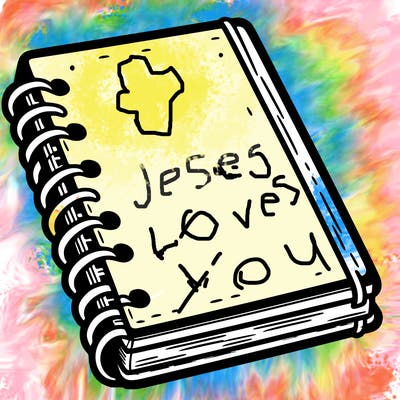 Jeses
Loves
You